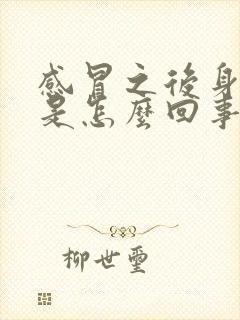 感冒之後身
是怎麼回事
柳世璽